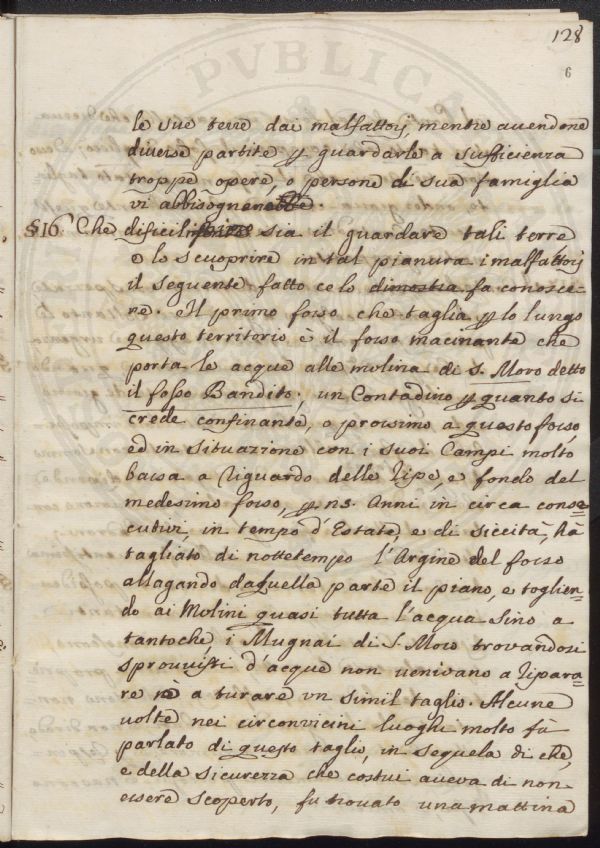 128
6
le sue terre dai malfattorj, mentre avendone
diverse partite p guardarle a sufficienza
troppe opere, o persone di sua famiglia
vi abbisognerebbe.
§16. Che dificil sia il guardare tali terre
e lo scuoprire in tal pianura i malfattorj
il seguente fatto ce lo dimostra fa conosce=
re. Il primo fosso che taglia p lo lungo
questo territorio è il fosso macinante che
porta le acque alle molina di S. Moro detto
il fosso Bandito; un Contadino p quanto si
crede confinante, o prossimo a questo fosso,
ed in situazione con i suoi Campi molto
bassa a riguardo delle ripe, e fondo del
medesimo fosso, p n3. Anni in circa conse=
cutivi, in tempo d'Estate, e di siccità, hà
tagliato di nottetempo l'Argine del fosso
allagando daquella parte il piano, e toglien=
do ai Molini quasi tutta l'acqua sino a
tantoche i Mugnai di S. Moro trovandosi
sprovvisti d'acque non venivano a ripara=
re a turare un simil taglio. Alcune
volte nei circonvicini luoghi molto fù
parlato di questo taglio, in sequela di che,
e della sicurezza che costui aveva di non
essere scoperto, fu trovato una mattina
PVBLICA